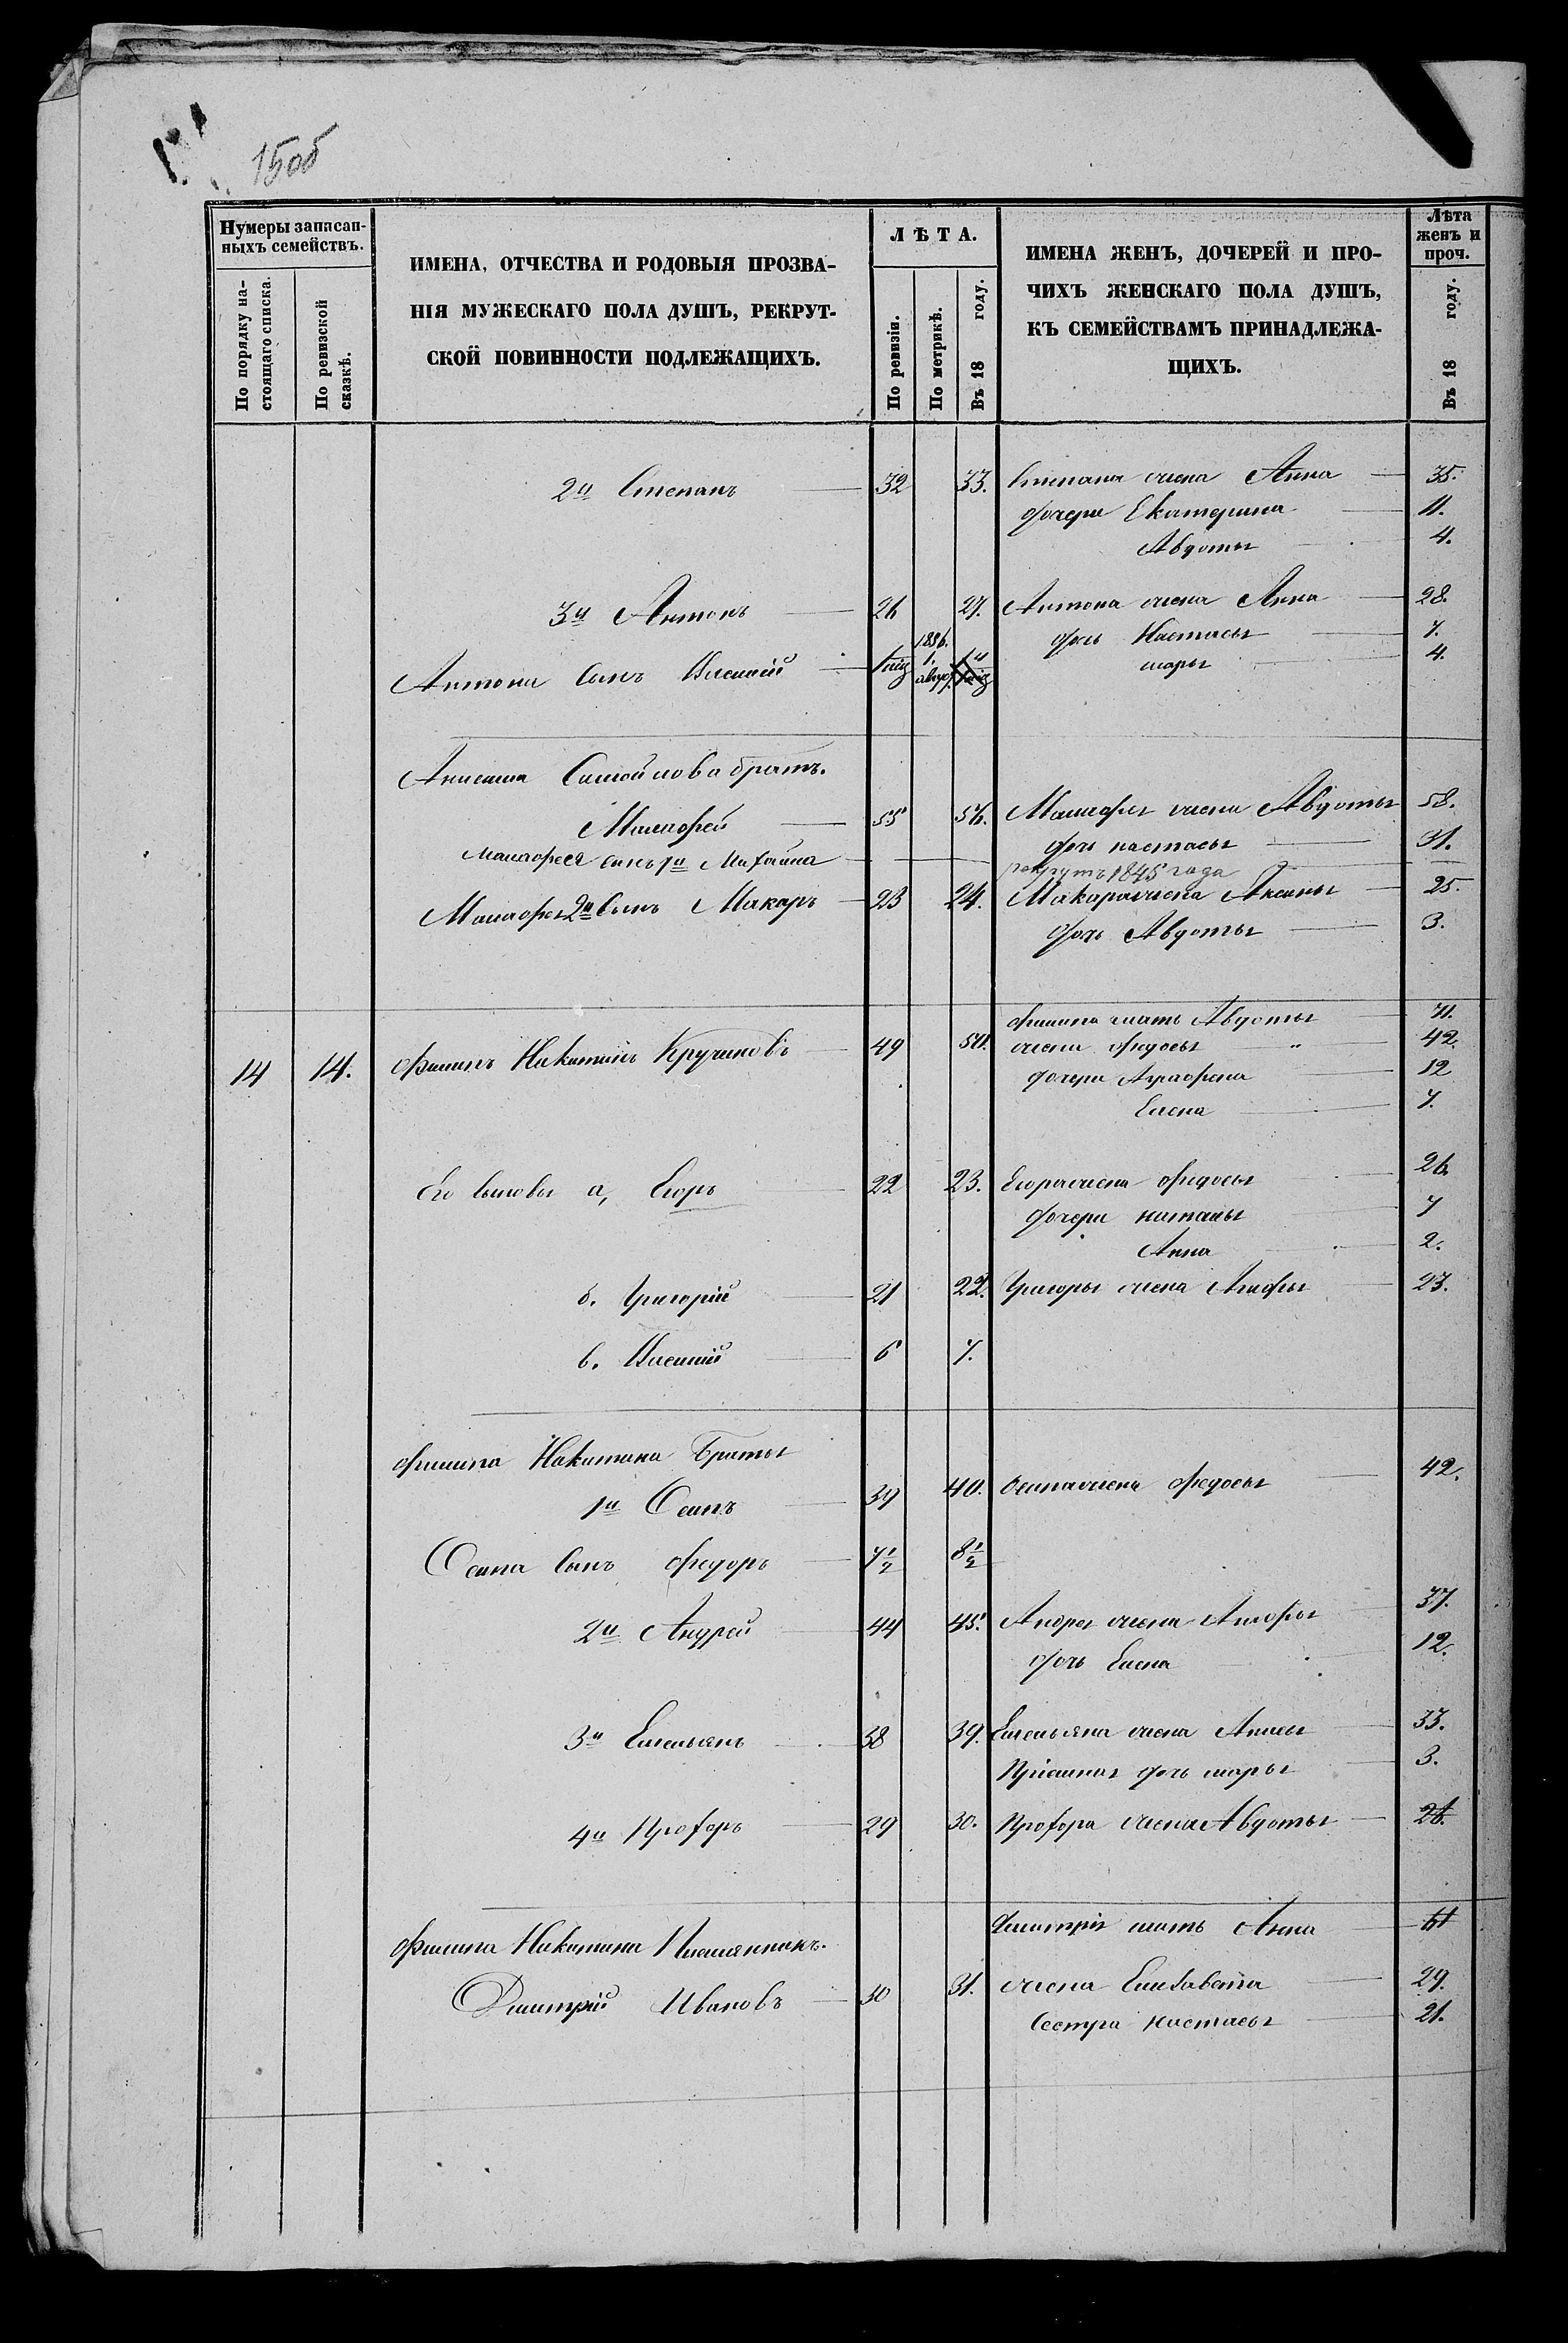 150б
Нумеры записан-
ныхъ семействъ.
По порядку на-
стоящаго списка.
По ревизской
сказкѣ.
ИМЕНА, ОТЧЕСТВА И РОДОВЫЯ ПРОЗВА-
НІЯ МУЖЕСКАГО ПОЛА ДУШЪ, РЕКРУТ-
СКОЙ ПОВИННОСТИ ПОДЛЕЖАЩИХЪ.
ЛѢТА.
По ревизіи.
По метрикѣ.
Въ 18 году.
ИМЕНА ЖЕНЪ, ДОЧЕРЕЙ И ПРО-
ЧИХЪ ЖЕНСКАГО ПОЛА ДУШЪ,
КЪ СЕМЕЙСТВАМЪ ПРИНАДЛЕЖА-
ЩИХЪ.
Лѣта
женъ и
проч.
Въ 18 году.
2й Степанъ 32 33. Степана жена Анна 35.
дочери Екатерина 11.
Авдотья 4.
3й Антонъ 26 27. Антона жена Анна 28.
дочь Настасья 7.
Антона Сынъ Василій 1 1 марья 4.
Самойлова братъ.
55 56. жена Авдотья 58.
дочь настасья 31.
сынъ 1й
рекрутъ 1845 года
2й Сынъ Макаръ 23 24. Макара жена Аксинья 25.
дочь Авдотья 3.
Филипа мать Авдотья 71.
14 14. Филипъ Никитинъ Кручиновъ 49 50. жена Федосья 42.
дочери Аграфена 12
Елена 7.
Его Сыновья а, Егоръ 22 23. Егора жена Федосья 26.
дочери наталья 7
Анна 2.
б. Григорій 21 22. Григорья жена 23.
в. Василій 6 7.
Филипа Никитина Братья
1й Осипъ 39 40. Осипа жена Федосья 42.
Осипа Сынъ Федоръ 7½ 8½
2й Андрей 44 45. Андрея жена 37.
дочь Елена 12.
3й Емельянъ 38 39. Емельяна жена 33.
дочь марья 3.
4й Прохоръ 29 30. Прохора жена Авдотья
Дмитрія мать Анна
Филипа Никитина Племянникъ.
Дмитрій Ивановъ 30 31. жена Елизавета 29.
Сестра настасья 21.